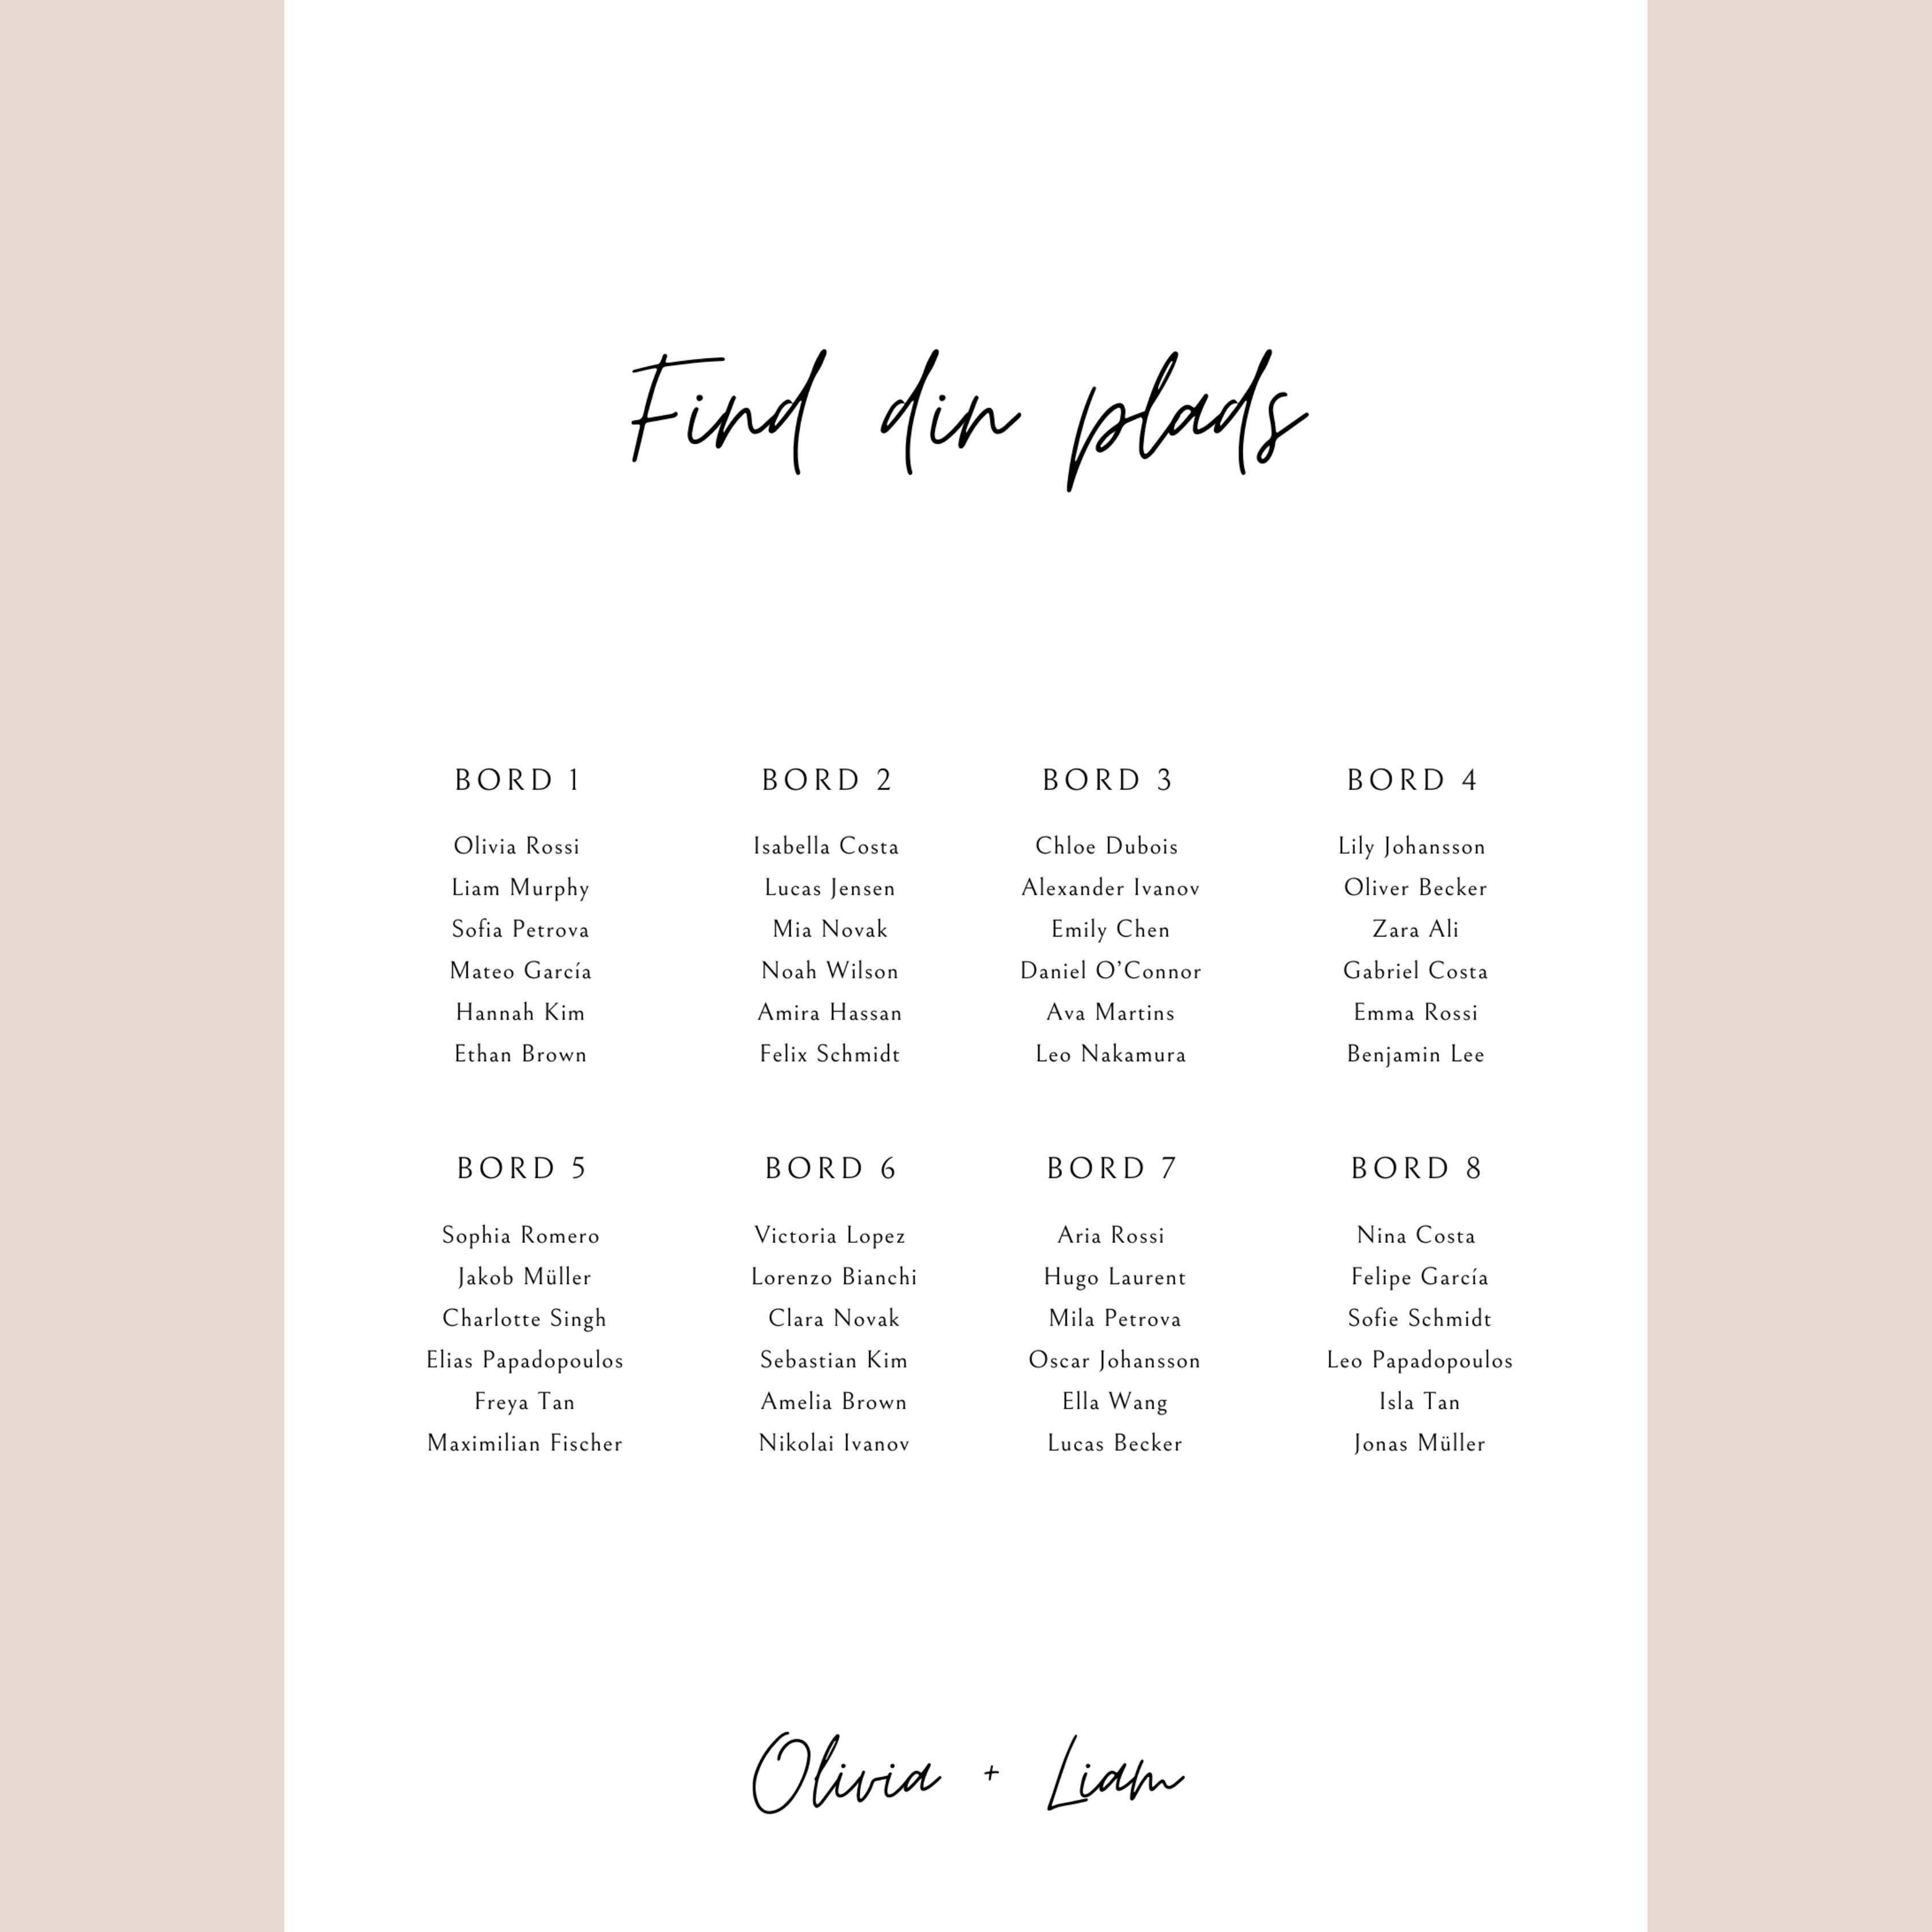 Find din plads
BORD 1
Olivia Rossi
Liam Murphy
Sofia Petrova
Mateo García
Hannah Kim
Ethan Brown
BORD 2
Isabella Costa
Lucas Jensen
Mia Novak
Noah Wilson
Amira Hassan
Felix Schmidt
BORD 3
Chloe Dubois
Alexander Ivanov
Emily Chen
Daniel O’Connor
Ava Martins
Leo Nakamura
BORD 4
Lily Johansson
Oliver Becker
Zara Ali
Gabriel Costa
Emma Rossi
Benjamin Lee
BORD 5
Sophia Romero
Jakob Müller
Charlotte Singh
Elias Papadopoulos
Freya Tan
Maximilian Fischer
BORD 6
Victoria Lopez
Lorenzo Bianchi
Clara Novak
Sebastian Kim
Amelia Brown
Nikolai Ivanov
BORD 7
Aria Rossi
Hugo Laurent
Mila Petrova
Oscar Johansson
Ella Wang
Lucas Becker
BORD 8
Nina Costa
Felipe García
Sofie Schmidt
Leo Papadopoulos
Isla Tan
Jonas Müller
Olivia + Liam